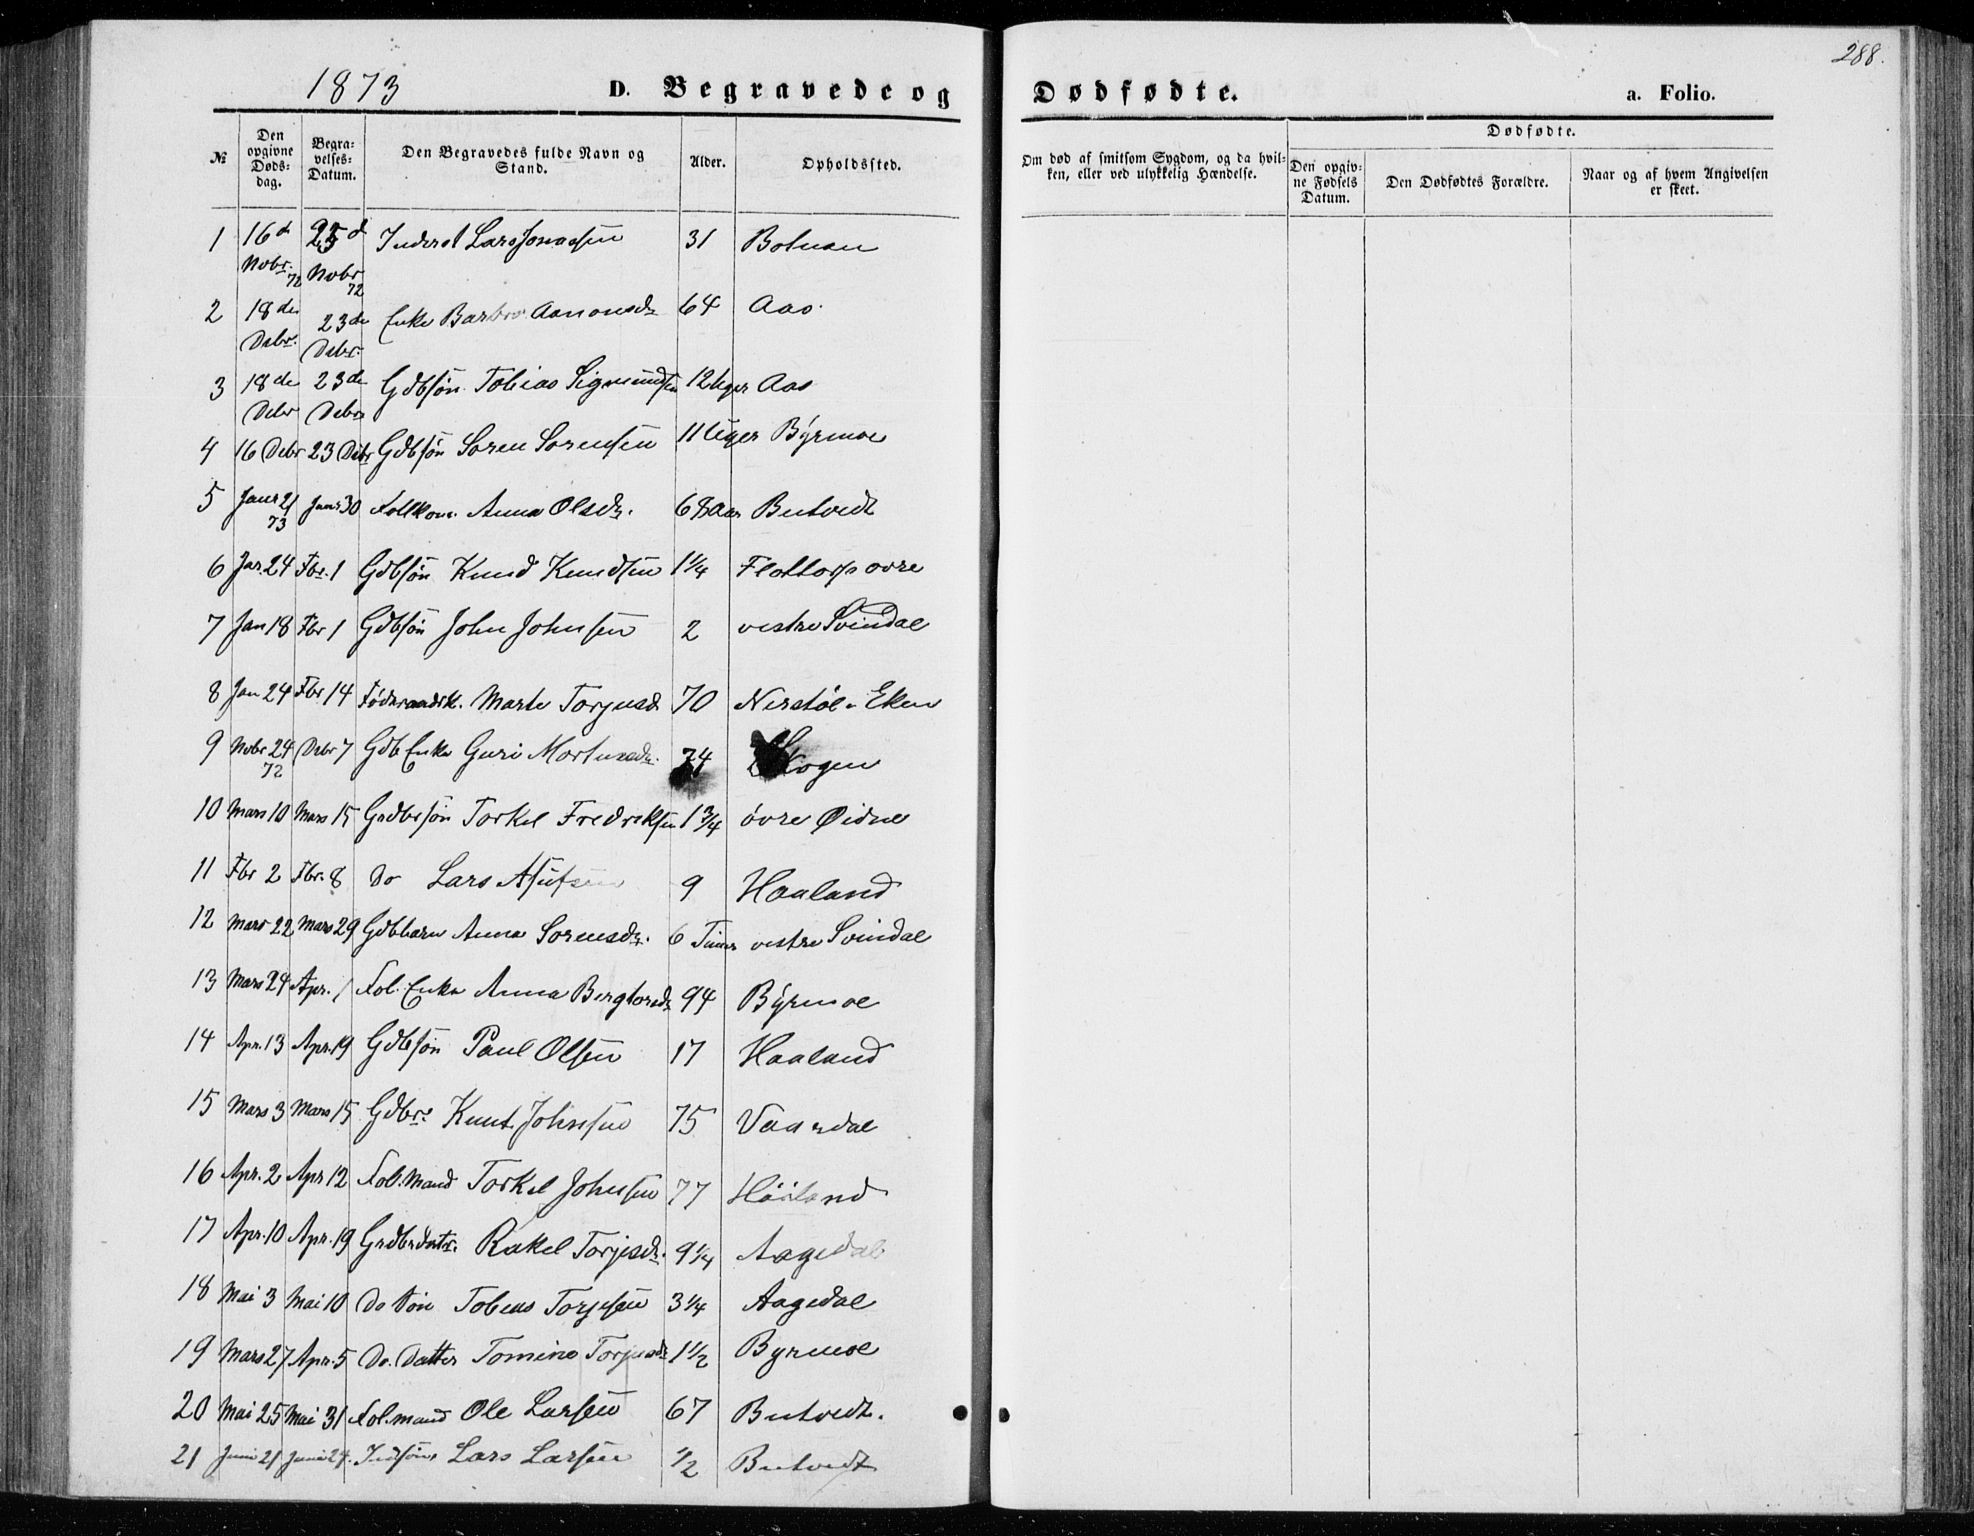 288.
1873 D. Begravede og Dødfødte. a. Folio.
№ Den opgivne Døds-dag. Begra-velses-Datum. Den Begravedes fulde Navn og Stand. Alder. Opholdssted. Om død af smitsom Sygdom, og da hvil-ken, eller ved ulykkelig Hændelse. Dødfødte. Den opgiv-ne Fødsels Datum. Den Dødfødtes Forældre. Naar og af hvem Angivelsen er skeet.
1 16d Nobr. 72 25d Nobr 72 Inderst Lars Jonassen 31 Botnan
2 18de Debr. 23de Debr. Enke Barbro Aanonsdr 64 Aas
3 18de Debr 23de Debr Gdbsøn Tobias Sigmundsen 12 Uger Aas
4 16 Debr 23 Debr Gdbsøn Soren Sorensen 11 Uger Byrmoe
5 Janr 21 73 Janr 30 Folkone Anna Olsdr. 68 Aar Butvedt
6 Jan. 24 Fbr. 1 Gdbsøn Knud Knudsen 1 1/4 Flottorp ovre
7 Jan 18 Fbr 1 Gdbsøn John Johnsen 2 vestre Svindal
8 Jan 24 Fbr 14 Føderaadsk. Marte Torjusd 70 Nerstøl - Eken
9 Nobr 24 72 Debr 7 Gdb Enke Guri Mortensdr. 74 Skogen
10 Mars 10 Mars 15 Grdbrsøn Torkel Fredriksen 1 3/4 øvre Øidne
11 Fbr 2 Fbr. 8 Do Lars Asulfsen 9 Haaland
12 Mars 22 Mars 29 Gdbbarn Anna Sorensdr. 6 Timer vestre Svindal
13 Mars 24 Apr. 1 Fol. Enke Anna Bergtorsdr 94 Byrmoe
14 Apr. 13 Apr. 19 Gdbsøn Paul Olsen 17 Haaland
15 Mars 3 Mars 15 Gdbr. Knut Johnsen 75 Vaardal
16 Apr. 2 Apr 12 Fol. Mand Torkel Johnsen 77 Høiland
17 Apr. 10 Apr. 19 Grdbrdatr. Rakel Torjesdr. 9 1/4 Aagedal
18 Mai 3 Mai 10 Do Søn Tobias Torjesen 3 1/4 Aagedal
19 Mars 27 Apr. 5 Do. Datter Tomine Torjusdr 1 1/2 Byrmoe
20 Mai 25 Mai 31 Fol. mand Ole Larsen 67 Butvedt.
21 Juni 21 Juni 24. Indsøn Lars Larsen 1/2 Butvedt